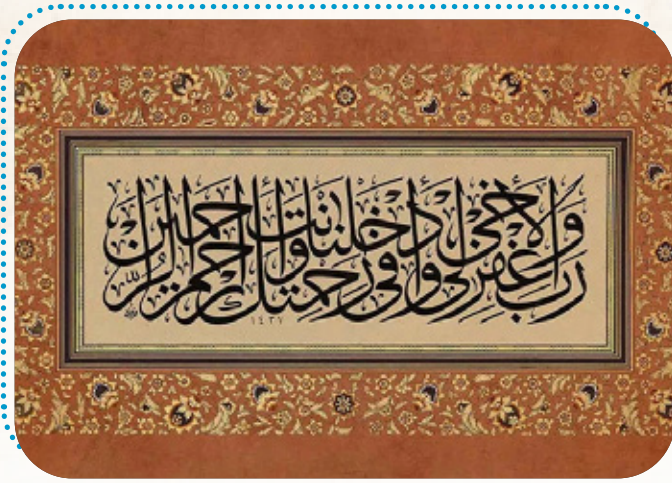 رَبِّ اغْفِرْ لِي وَلِأَخِي وَأَدْخِلْنَا فِي رَحْمَتِكَ وَأَنْتَ أَرْحَمُ الرَّاحِمِينَ
١٤٣٧